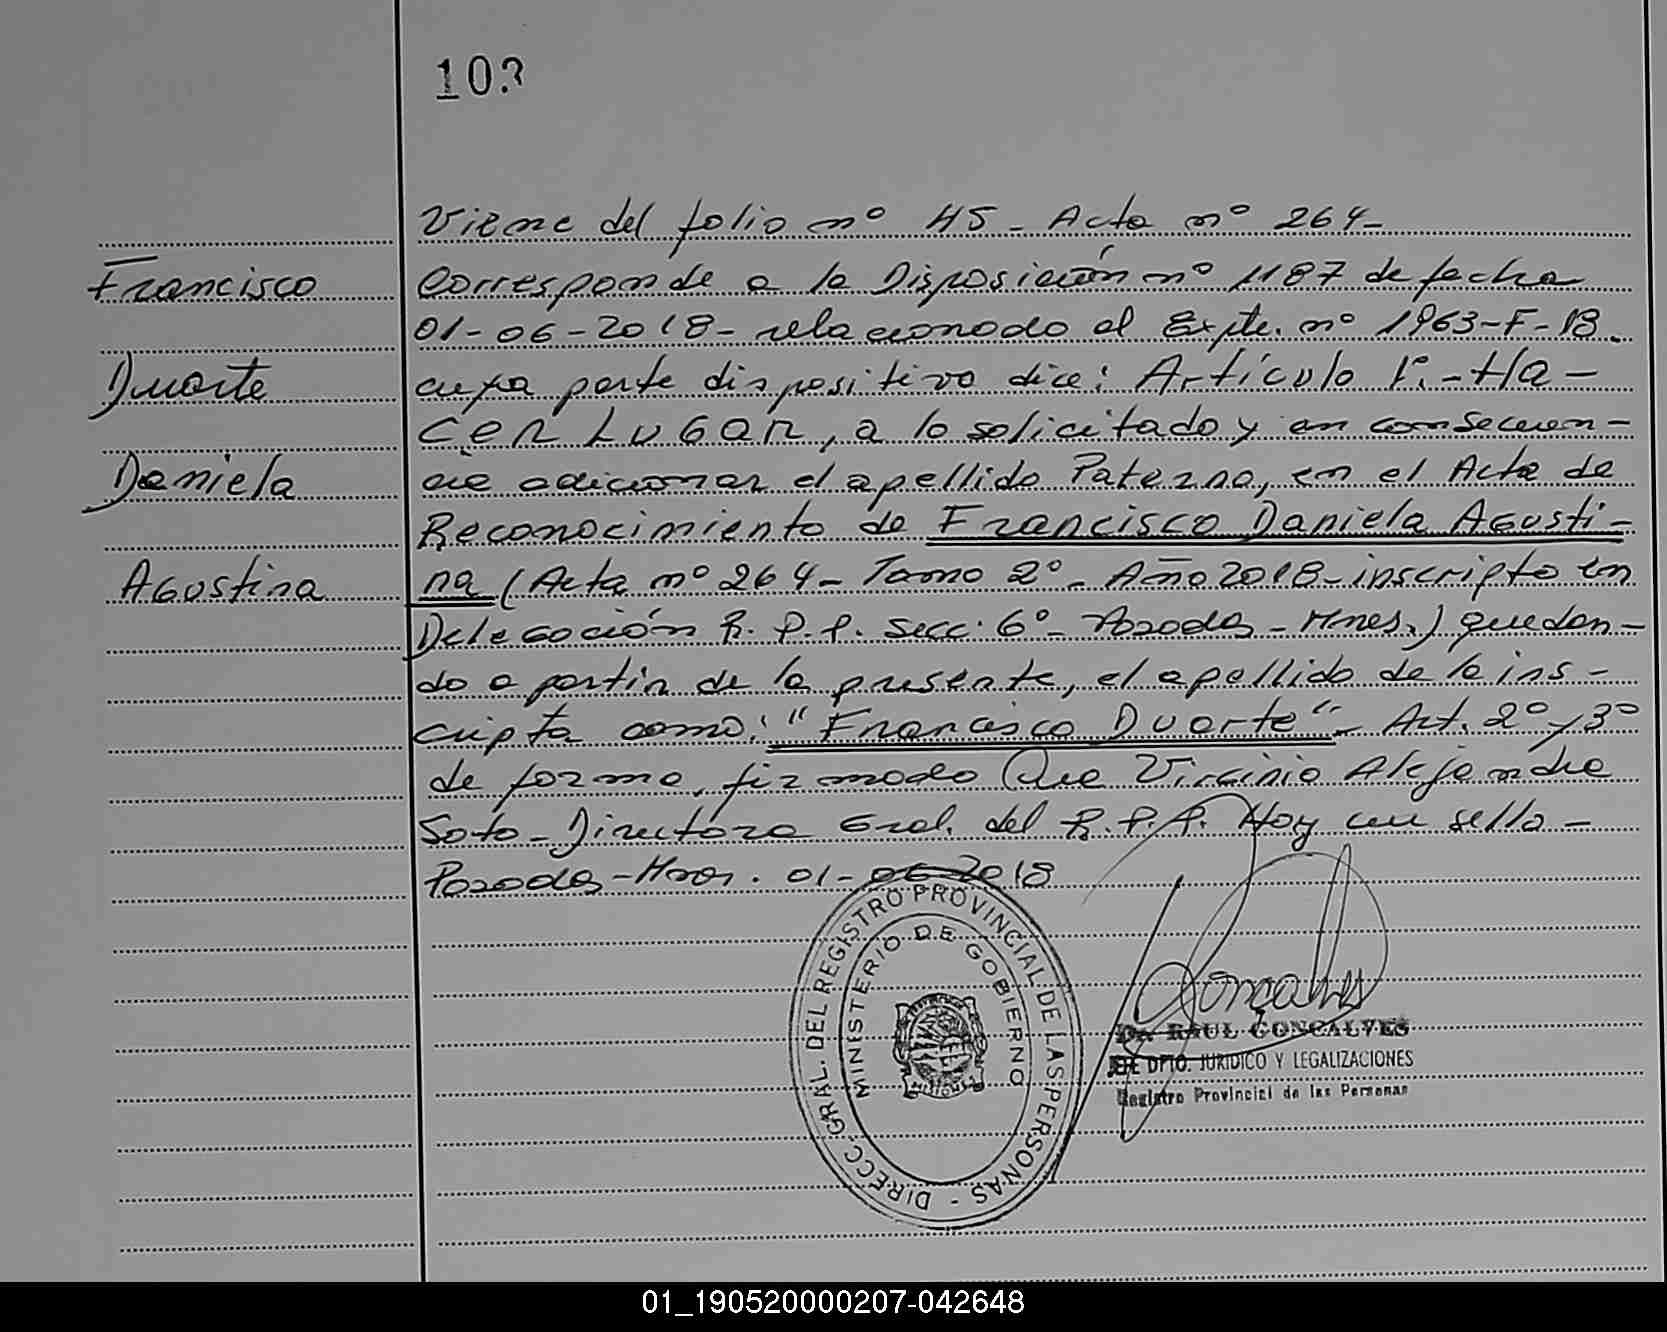 103
Viene del folio nº 45 - Acta nº 264-
Francisco
Duarte
Daniela
Agostina
Corresponde a la Disposición nº 1187 de fecha
01-06-2018- relacionado al Expte. nº 1963-F-18.
cuya parte dispositiva dice: Artículo 1º.- Ha-
cer Lugar, a lo solicitado y en consecuen-
cia adicionar el apellido Paterno, en el Acta de
Reconocimiento de Francisco Daniela Agosti-
na (Acta nº 264- Tomo 2º- Año 2018- inscripto en
Delegación R.P.P. Secc. 6º- Posadas - Mnes.) quedan-
do a partir de la presente, el apellido de la ins-
cripta como: "Francisco Duarte"- Art. 2º y 3º
de forma, firmado Virginia Alejandra
Soto - Directora Gral. del R.P.P. Hay un sello -
Posadas - Mnes. 01-06-2018
DIRECC. GRAL. DEL REGISTRO PROVINCIAL DE LAS PERSONAS -
MINISTERIO DE GOBIERNO
MISIONES
Gonçalves
Dr. RAUL GONCALVES
JEFE DPTO. JURIDICO Y LEGALIZACIONES
Registro Provincial de las Personas
01_190520000207-042648